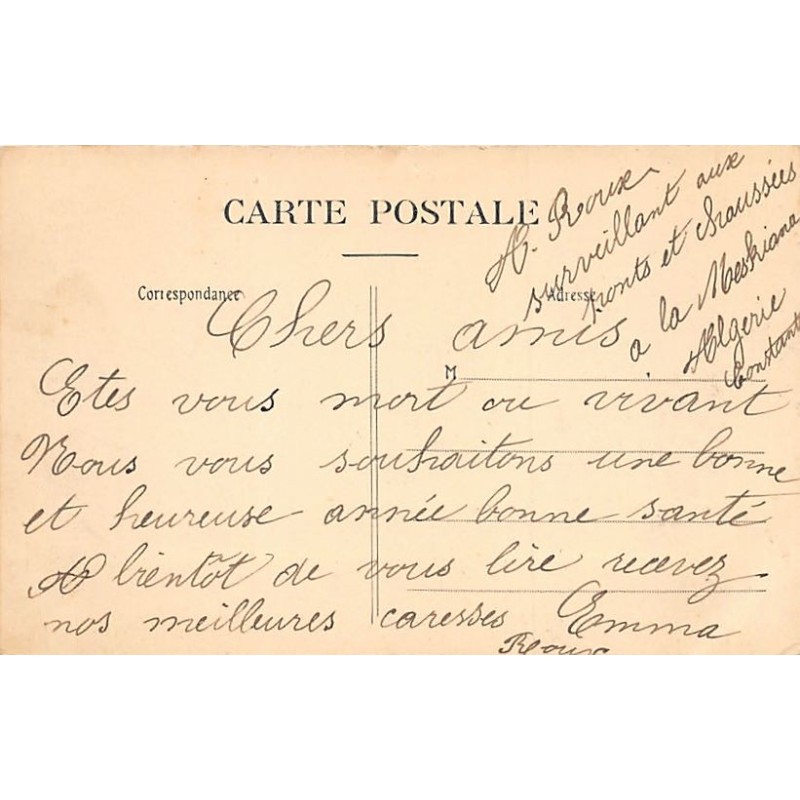 CARTE POSTALE
A. Roux
surveillant aux
ponts et chaussées
a la Meskiana
Algerie
Constant
Correspondance
Adresse
Chers amis
M
Etes vous mort ou vivant
Nous vous souhaitons une bonne
et heureuse année bonne santé
A bientôt de vous lire recevez
nos meilleures caresses Emma
Roux